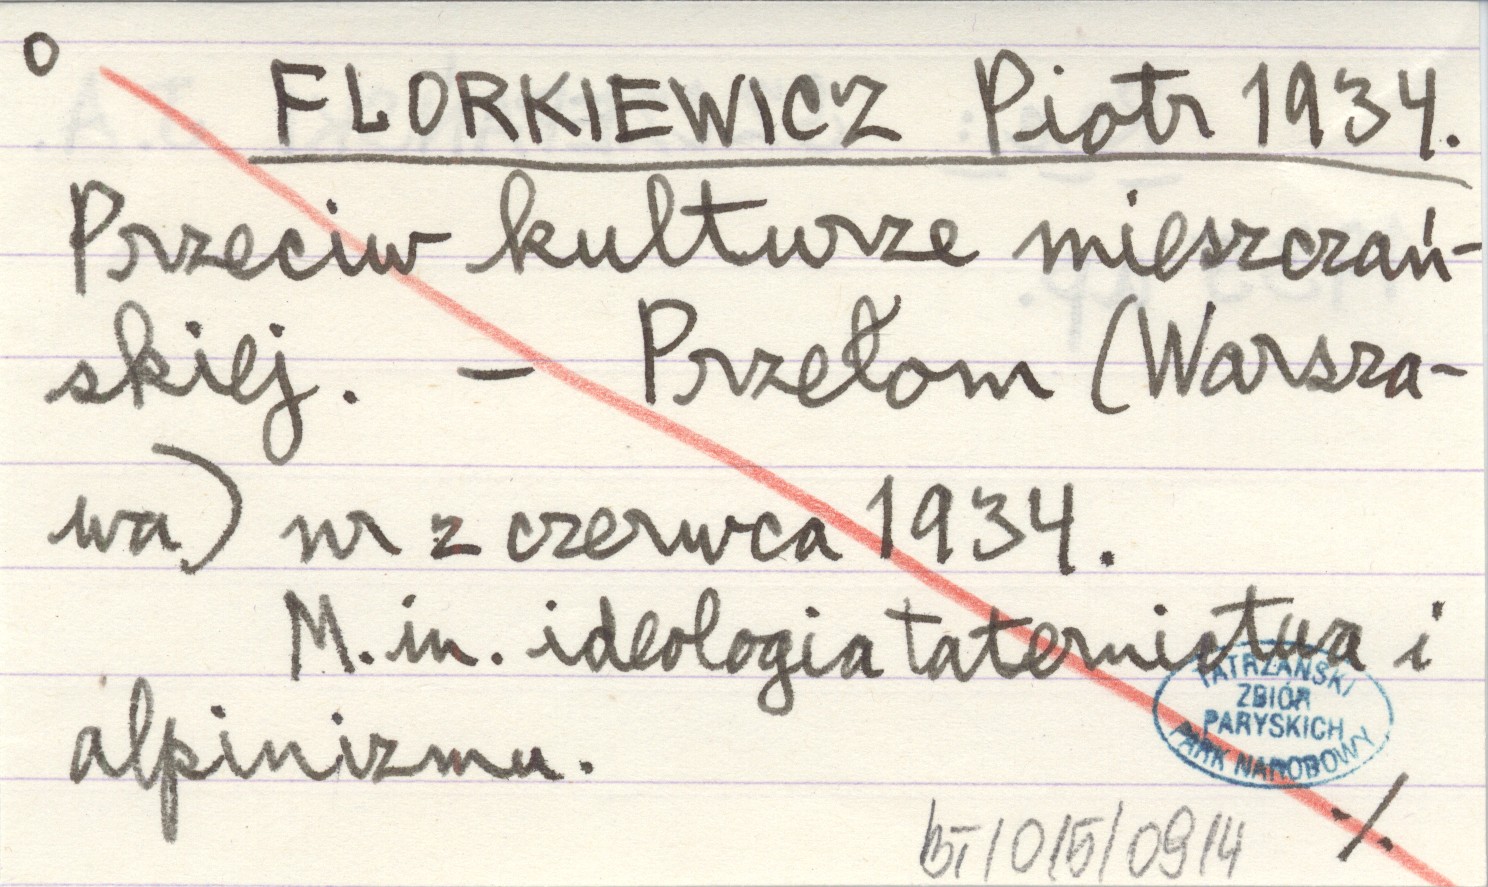 O
FLORKIEWICZ Piotr 1934.
Przeciw kulturze mieszczań-
skiej. - Przełom (Warsza-
wa) nr z czerwca 1934.
M.in. ideologia taternictwa i
alpinizmu.
TATRZAŃSKI
ZBIÓR
PARYSKICH
PARK NARODOWY
./.
/0/5/0914